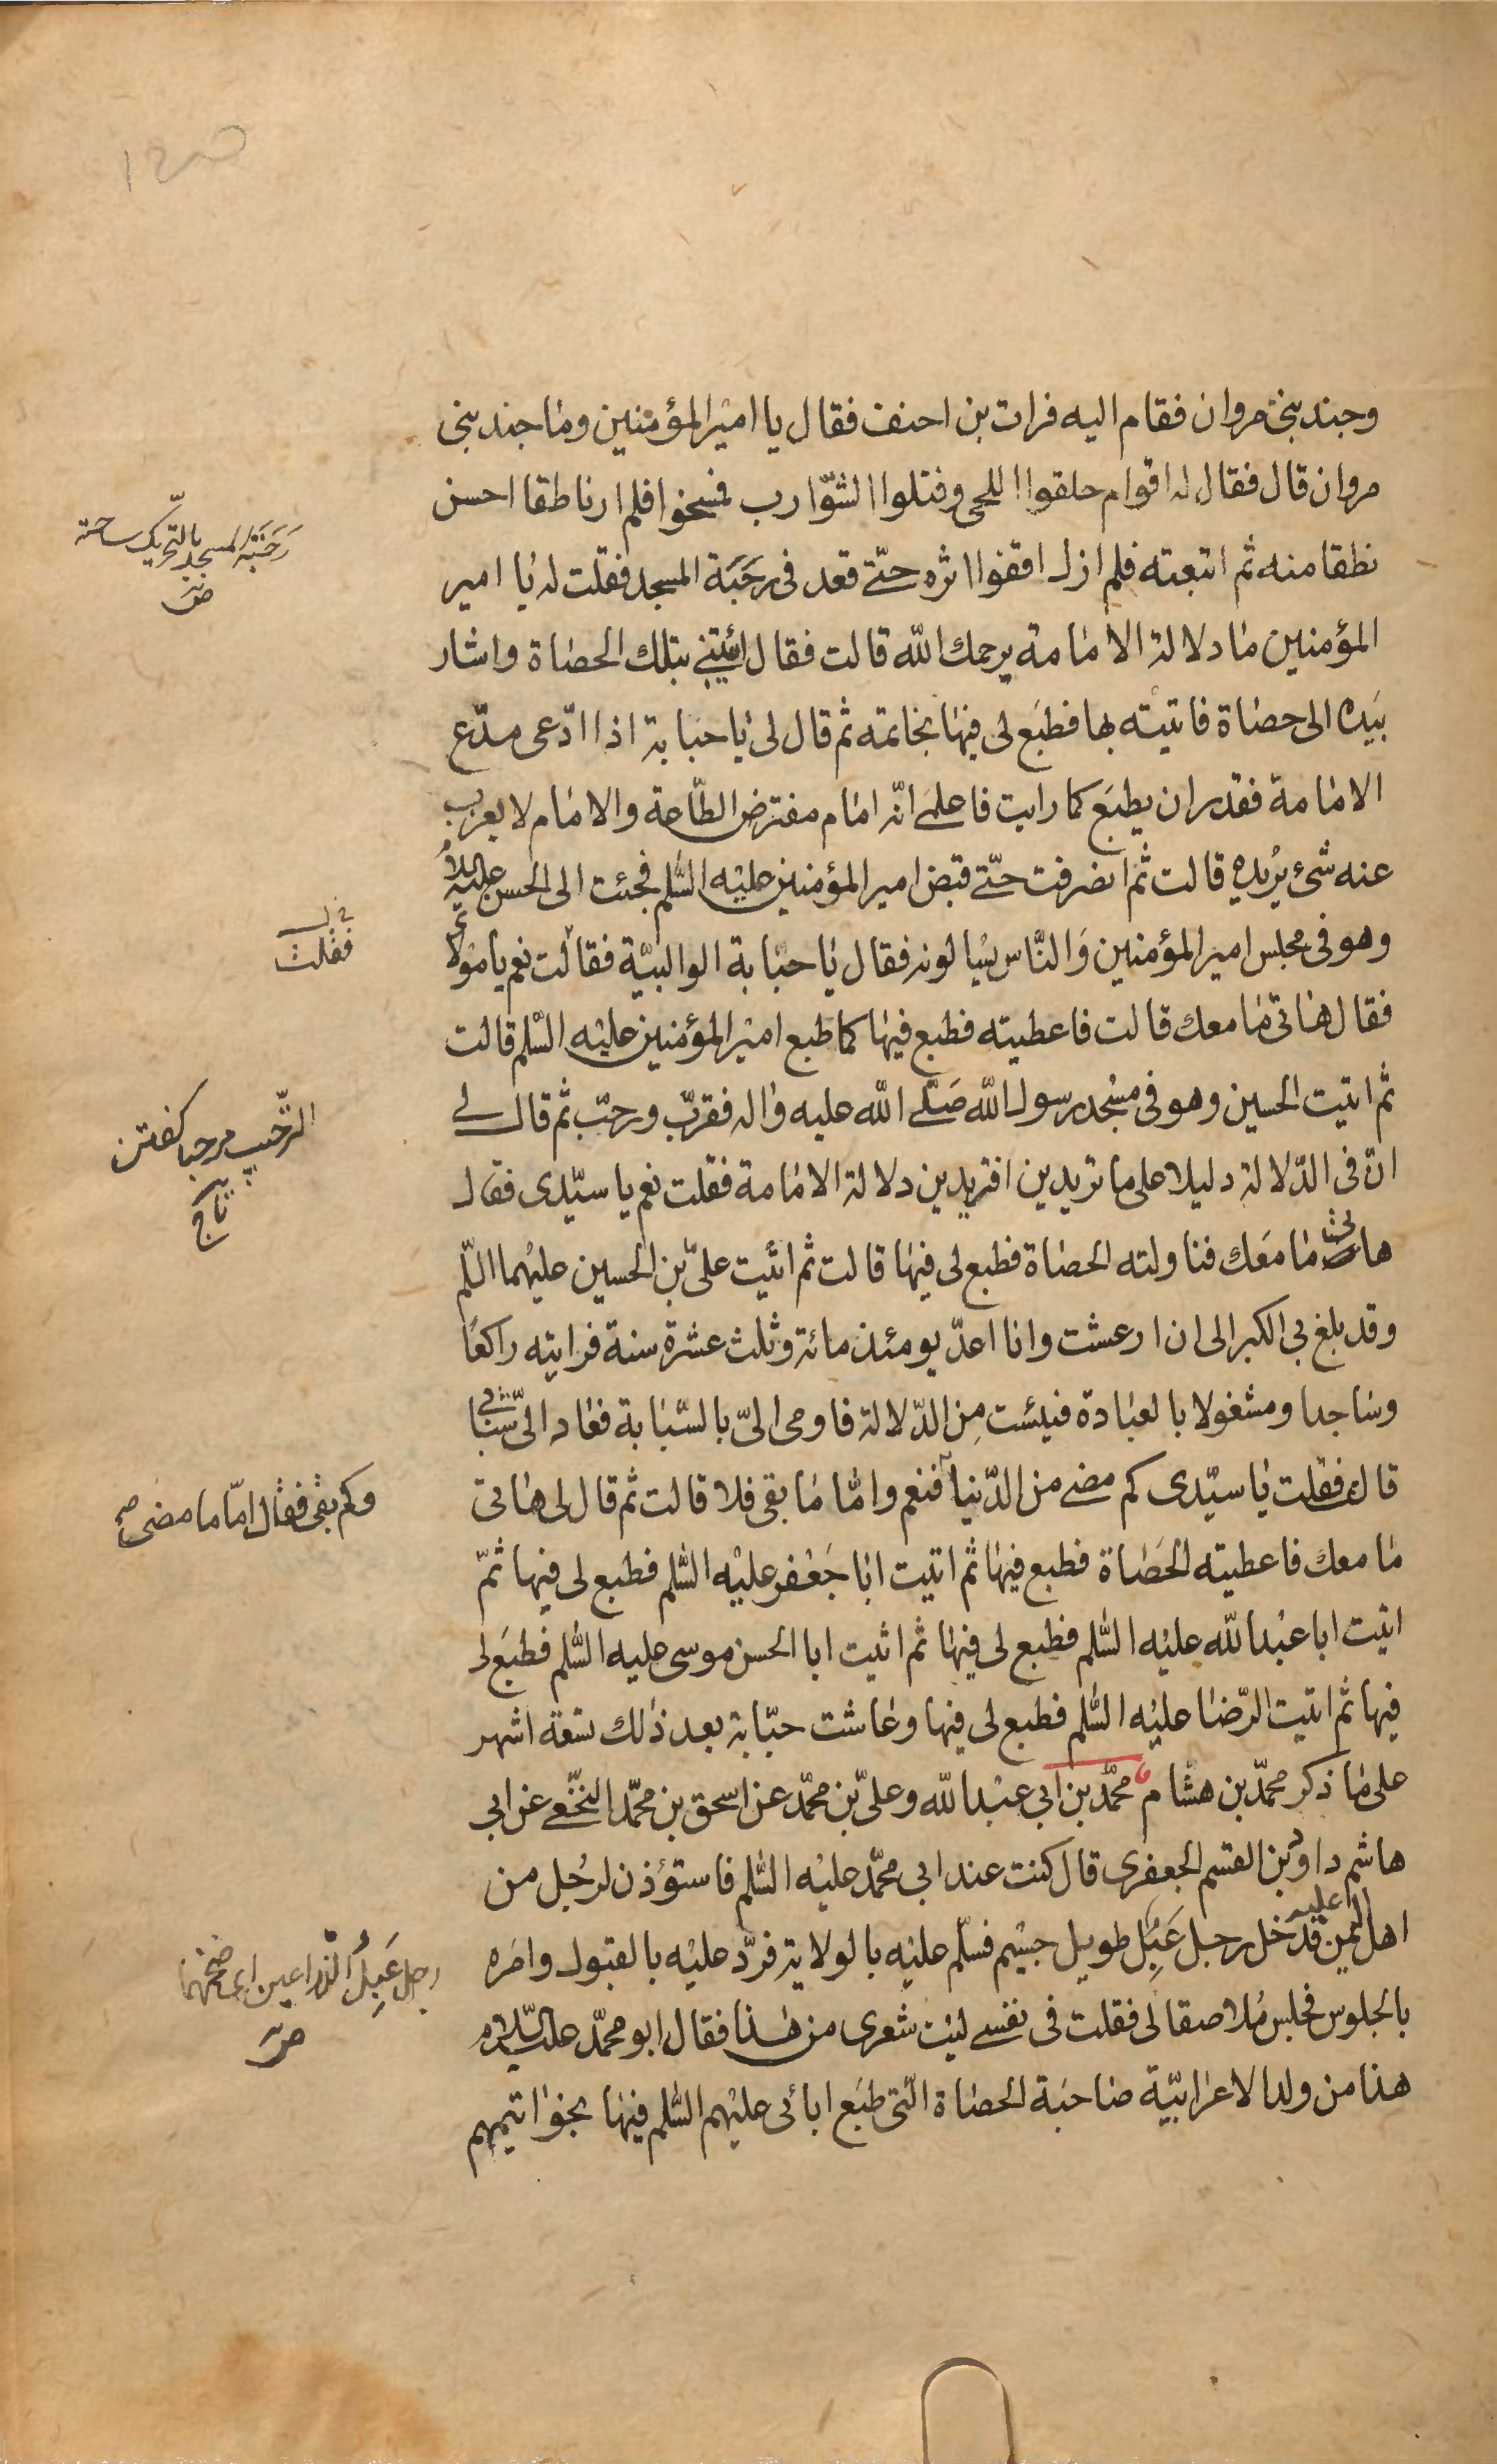 وجند بنی مروان فقام اليه فرات بن احنف فقال يا امير المؤمنين وما جند بنی
مروان قال فقال له اقوام حلقوا اللحى وفتلوا الشوّارب فمسخوا فلم ار ناطقا احسن
نطقا منه ثم اتبعته فلم ازل اقفوا اثره حتّى قعد فى رَحَبَة المسجد فقلت له يا امير
المؤمنين ما دلالة الامامة يرحمك الله قالت فقال ائتينى بتلك الحصاة واشار
بيَده الى حصاة فاتيته بها فطبَع لى فيها بخاتمه ثم قال لى يا حبابة اذا ادّعى مدّع
الامامة فقدر ان يطبَع كما رايت فاعلمى انّه امام مفترض الطّاعة والامام لا يعزب
عنه شئ يُريده قالت ثم انصرفت حتّى قبض امير المؤمنين عليه السّلم فجئت الى الحسن عليه السلام
وهو فى مجلس امير المؤمنين وَالنّاس يسُالونه فقال يا حبّابة الوالبيّة فقالت نعم يا مولاى
فقال هاتى ما معك قالت فاعطيته فطبع فيها كما طبع امير المؤمنين عليه السّلم قالت
ثم اتيت الحسين وهو فى مسْجد رسول الله صَلّى الله عليه واله فقرّب ورحّب ثم قال لى
انّ فى الدّلالة دليلا على ما تريدين افتريدين دلالة الامامة فقلت نعم يا سيّدى فقال
هاتى ما مَعك فناولته الحصاة فطبع لى فيها قالت ثم اتيت علىّ بن الحسين عليهما السّلم
وقد بلغ بى الكبر الى ان ارعشت وانا اعدّ يومئذ مائة وثلث عشرة سنة فرايته راكعًا
وساجدا ومشغولا بالعبَادة فيئست مِن الدّلالة فاومى الىّ بالسّبّابة فعاد الىّ شبابى
قالت فقلت يا سيّدى كم مضى من الدّنيا فنعم وامّا ما بقى فلا قالت ثم قال لى هاتى
ما معك فاعطيته الحَصاة فطبع فيها ثم اتيت ابا جَعْفر عليْه السّلم فطبع لى فيها ثمّ
اتيت ابا عبْد الله عليْه السّلم فطبع لى فيها ثم اتيت ابا الحسن موسى عليه السّلم فطبَع لى
فيها ثم اتيت الرّضا عليْه السّلم فطبع لى فيها وعاشت حبّابة بعد ذلك تسعة اشهر
على ما ذكر محمّد بن هشام محمّد بن ابى عبْد الله وعلىّ بن محمّد عن اسحق بن محمّد النّخعى عن ابى
هاشم داود بن القسم الجعفرى قال كنت عند ابى محمّد عليْه السّلم فاستؤذن لرجُل من
اهل اليمن عليه فدخل رجل عَبِل طويل جسْيم فسلّم عليْه بالولاية فردّ عليْه بالقبول وامَره
بالجلوس فجلس مُلاصقا لى فقلت فى نفسى ليْت شعرى من هذا فقال ابو محمّد عليه السّلام
هذا من ولد الاعرابيّة صاحبَة الحصاة الّتى طبَع ابائى عليْهم السّلم فيها بخواتيمهم
رَحَبَة المسجد بالتّحريك ساحته
ض
فقلت
الترحيب مرحبا كفتن
تاج
وكم بقى فقال امّا ما مضى صح
رجل عَبِلُ الذّراعين اى ضخمهما
ض